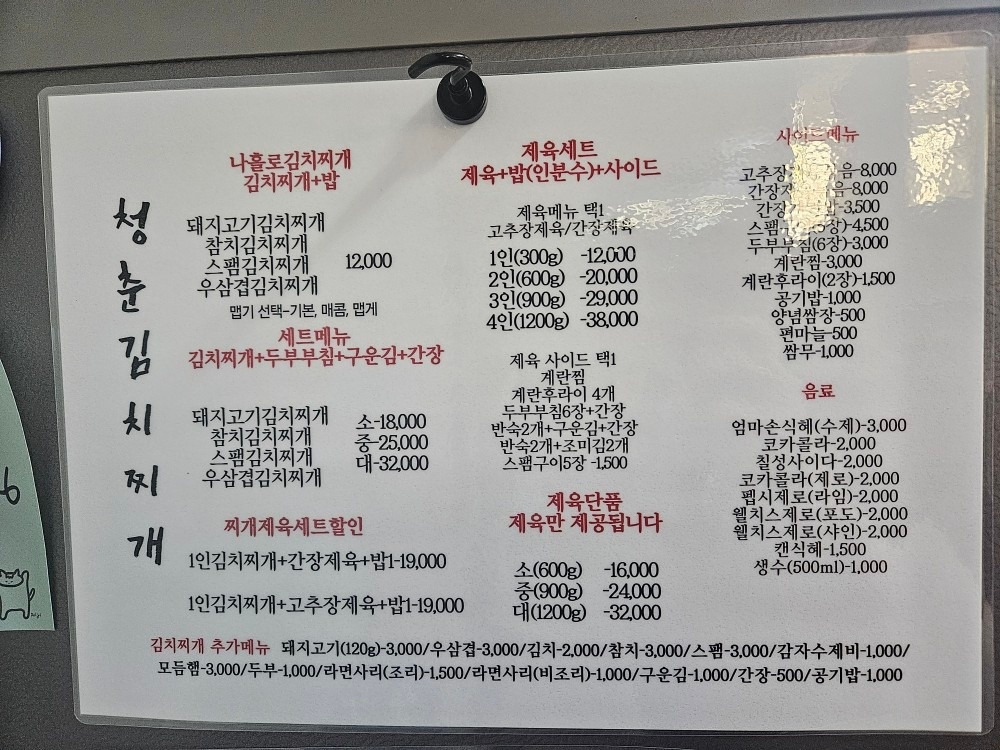 청춘김치찌개
나홀로김치찌개
김치찌개+밥
돼지고기김치찌개
참치김치찌개
스팸김치찌개 12,000
우삼겹김치찌개
맵기 선택-기본, 매콤, 맵게
세트메뉴
김치찌개+두부부침+구운김+간장
돼지고기김치찌개 소-18,000
참치김치찌개 중-25,000
스팸김치찌개 대-32,000
우삼겹김치찌개
찌개제육세트할인
1인김치찌개+간장제육+밥1-19,000
1인김치찌개+고추장제육+밥1-19,000
제육세트
제육+밥(인분수)+사이드
제육메뉴 택1
고추장제육/간장제육
1인(300g) -12,000
2인(600g) -20,000
3인(900g) -29,000
4인(1200g) -38,000
제육 사이드 택1
계란찜
계란후라이 4개
두부부침6장+간장
반숙2개+구운김+간장
반숙2개+조미김2개
스팸구이5장 -1,500
제육단품
제육만 제공됩니다
소(600g) -16,000
중(900g) -24,000
대(1200g) -32,000
사이드메뉴
-8,000
-8,000
-3,500
-4,500
두부부침(6장)-3,000
계란찜-3,000
계란후라이(2장)-1,500
공기밥-1,000
양념쌈장-500
편마늘-500
쌈무-1,000
음료
엄마손식혜(수제)-3,000
코카콜라-2,000
칠성사이다-2,000
코카콜라(제로)-2,000
펩시제로(라임)-2,000
웰치스제로(포도)-2,000
웰치스제로(샤인)-2,000
캔식혜-1,500
생수(500ml)-1,000
김치찌개 추가메뉴 돼지고기(120g)-3,000/우삼겹-3,000/김치-2,000/참치-3,000/스팸-3,000/감자수제비-1,000/
모듬햄-3,000/두부-1,000/라면사리(조리)-1,500/라면사리(비조리)-1,000/구운김-1,000/간장-500/공기밥-1,000
6